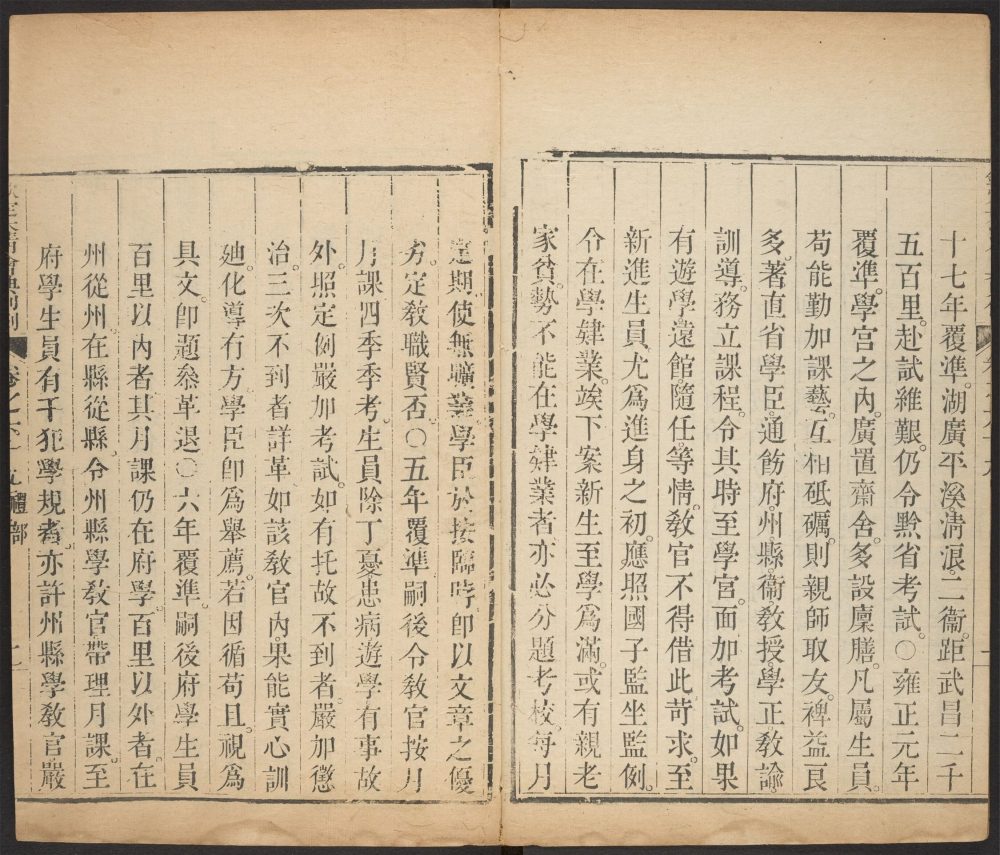 十七年覆準。湖廣平溪淸浪二衞。距武昌二千
五百里。赴試維艱。仍令黔省考試。○雍正元年
覆準。學宮之內。廣置齋舍。多設廩膳。凡屬生員。
苟能勤加課藝。互相砥礪。則親師取友。裨益良
多。著直省學臣。通飭府州縣衞敎授學正敎諭
訓導。務立課程。令其時至學宮。面加考試。如果
有遊學遠館。隨任等情。敎官不得借此苛求。至
新進生員。尤爲進身之初。應照國子監坐監例。
令在學肄業。竢下案新生至學爲滿。或有親老
家貧。勢不能在學肄業者。亦必分題考校。每月
定期。使無曠業。學臣於按臨時。卽以文章之優
劣。定敎職賢否。○五年覆準。嗣後令敎官按月
月課。四季季考。生員除丁憂患病遊學有事故
外。照定例嚴加考試。如有托故不到者。嚴加懲
治。三次不到者詳革。如該敎官內。果能實心訓
廸。化導有方。學臣卽爲舉薦。若因循苟且。視爲
具文。卽題叅革退。○六年覆準。嗣後府學生員
百里以內者。其月課仍在府學。百里以外者。在
州從州。在縣從縣。令州縣學敎官帶理月課。至
府學生員有干犯學規者。亦許州縣學敎官嚴
欽定大淸會典則例
卷之六十九禮部